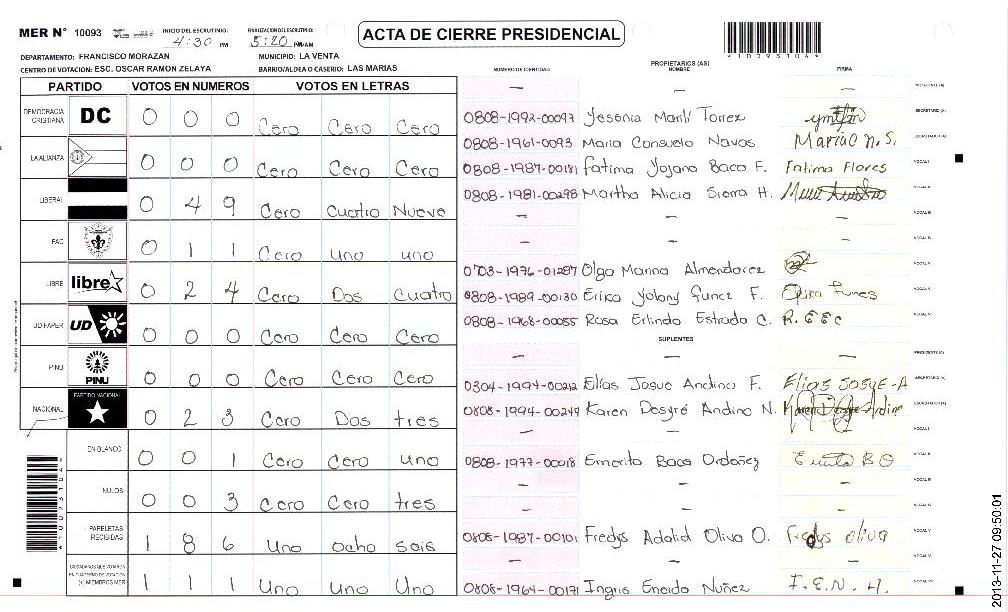 MER N° 10093 INICIO DEL ESCRUTINIO: 4:30 PM FINALIZACION DEL ESCRUTINIO: 5:20 PM/AM ACTA DE CIERRE PRESIDENCIAL
DEPARTAMENTO: FRANCISCO MORAZAN MUNICIPIO: LA VENTA
CENTRO DE VOTACION: ESC. OSCAR RAMON ZELAYA BARRIO/ALDEA O CASERIO: LAS MARIAS
PARTIDO VOTOS EN NUMEROS VOTOS EN LETRAS
DEMOCRACIA CRISTIANA DC 0 0 0 Cero Cero Cero
LA ALIANZA 0 0 0 Cero Cero Cero
LIBERAL 0 4 9 Cero Cuatro Nueve
PAC 0 1 1 Cero uno uno
LIBRE libre 0 2 4 Cero Dos Cuatro
UD-FAPER UD 0 0 0 Cero Cero Cero
PINU PINU 0 0 0 Cero Cero Cero
NACIONAL PARTIDO NACIONAL 0 2 3 Cero Dos tres
EN BLANCO 0 0 1 Cero Cero uno
NULOS 0 0 3 Cero Cero tres
PAPELETAS RECIBIDAS 1 8 6 Uno ocho seis
CIUDADANOS QUE VOTARON EN CUADERNO DE VOTACION (+) MIEMBROS MER 1 1 1 Uno Uno Uno
PROPIETARIOS (AS)
NUMERO DE IDENTIDAD NOMBRE FIRMA
— — — PRESIDENTE (A)
0808-1992-00097 Yesenia Marli Torrez SECRETARIO (A)
0808-1961-0093 Maria Consuelo Navas Mariac n.S.
0808-1987-00181 Fatima Yojana Baca F. Fatima Flores VOCAL I
0808-1981-00298 Martha Alicia Sierra H. VOCAL II
— — — VOCAL III
— — — VOCAL IV
0703-1976-01287 Olga Marina Almendarez VOCAL V
0808-1989-00130 Erica Yolany Funez F. Erica Funes
0808-1968-00055 Rosa Erlinda Estrada C. R.EEC
SUPLENTES
— — — PRESIDENTE (A)
0304-1994-00212 Elías Josue Andino F. Elias JOSUE-A SECRETARIO (A)
0808-1994-00249 Karen Desyré Andino N. Karen Desyre Andino
— — — VOCAL I
0808-1977-00018 Emerita Baca Ordoñez Emerita BO VOCAL II
— — — VOCAL III
— — — VOCAL IV
0808-1987-00101 Fredys Adalid Oliva O. Fredys oliva VOCAL V
— — —
0808-1964-00171 Ingris Eneida Nuñez I.E.N.H.
2013-11-27 09:50:01